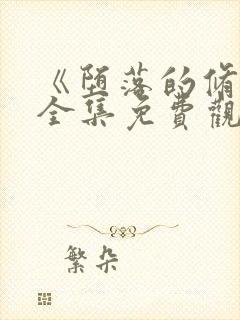 《堕落的脩
全集免費觀
繁朵